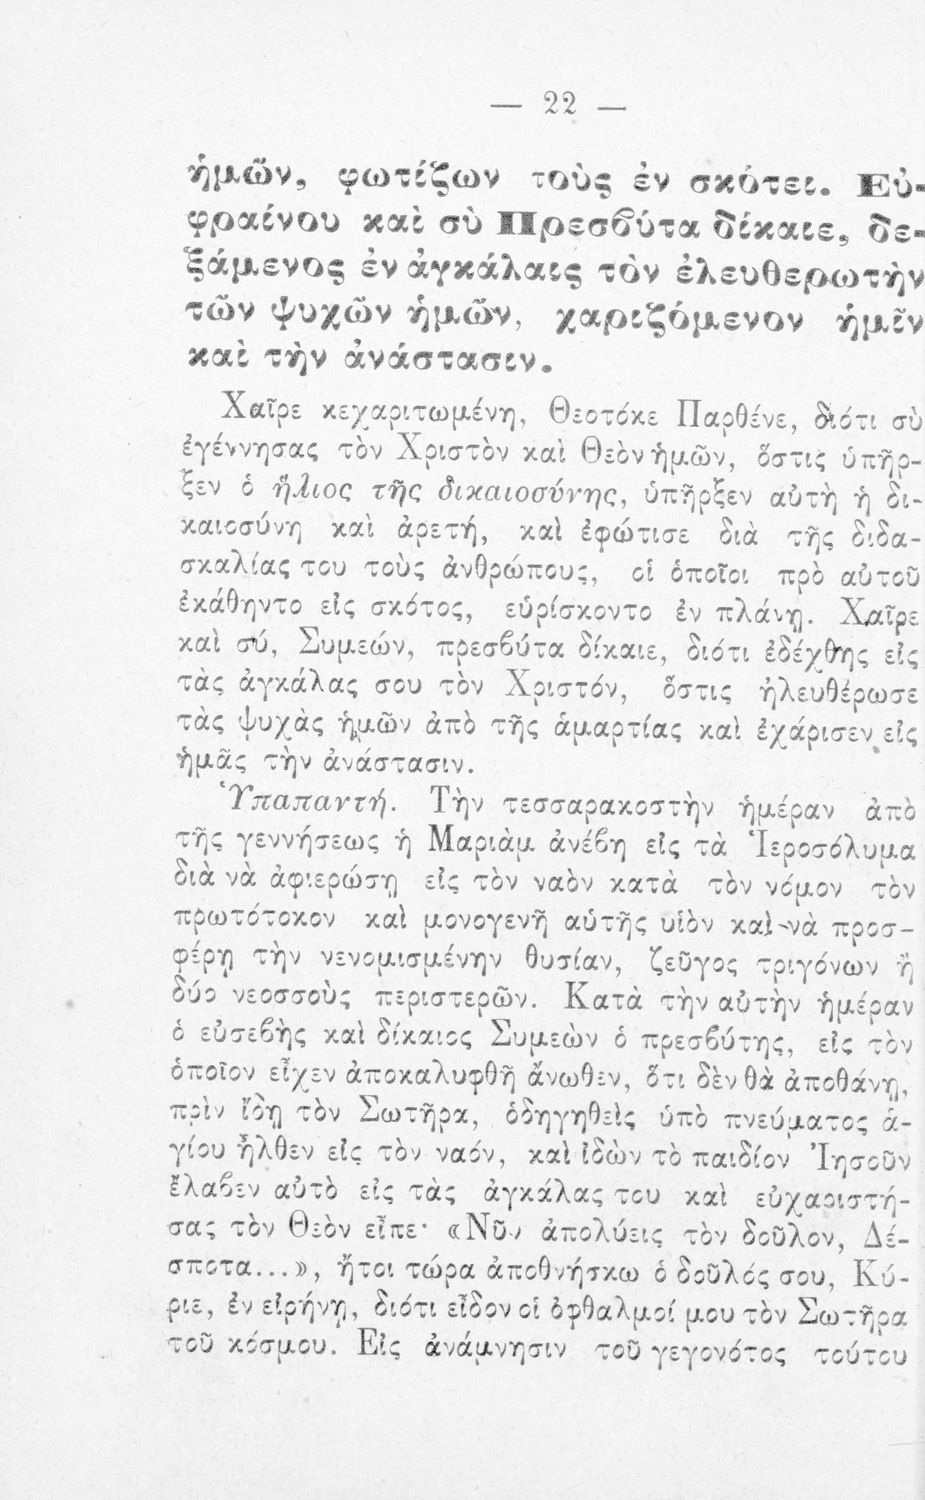 — 22 —
ἡμῶν, φωτίζων τοὺς ἐν σκότει. Εὐ-
φραίνου καὶ σὺ Πρεσβύτα δίκαιε, δε-
ξάμενος ἐν ἀγκάλαις τὸν ἐλευθερωτὴν
τῶν ψυχῶν ἡμῶν, χαριζόμενον ἡμῖν
καὶ τὴν ἀνάστασιν.
Χαῖρε κεχαριτωμένη, Θεοτόκε Παρθένε, διότι σὺ
ἐγέννησας τὸν Χριστὸν καὶ Θεὸν ἡμῶν, ὅστις ὑπῆρ-
ξεν ὁ ἥλιος τῆς δικαιοσύνης, ὑπῆρξεν αὐτὴ ἡ δι-
καιοσύνη καὶ ἀρετή, καὶ ἐφώτισε διὰ τῆς διδα-
σκαλίας του τοὺς ἀνθρώπους, οἱ ὁποῖοι πρὸ αὐτοῦ
ἐκάθηντο εἰς σκότος, εὑρίσκοντο ἐν πλάνῃ. Χαῖρε
καὶ σύ, Συμεών, πρεσβύτα δίκαιε, διότι ἐδέχθης εἰς
τὰς ἀγκάλας σου τὸν Χριστόν, ὅστις ἠλευθέρωσε
τὰς ψυχὰς ἡμῶν ἀπὸ τῆς ἁμαρτίας καὶ ἐχάρισεν εἰς
ἡμᾶς τὴν ἀνάστασιν.
Ὑπαπαντή. Τὴν τεσσαρακοστὴν ἡμέραν ἀπὸ
τῆς γεννήσεως ἡ Μαριὰμ ἀνέβη εἰς τὰ Ἱεροσόλυμα
διὰ νὰ ἀφιερώσῃ εἰς τὸν ναὸν κατὰ τὸν νόμον τὸν
πρωτότοκον καὶ μονογενῆ αὑτῆς υἱὸν καὶ νὰ προσ-
φέρῃ τὴν νενομισμένην θυσίαν, ζεῦγος τριγόνων ἢ
δύο νεοσσοὺς περιστερῶν. Κατὰ τὴν αὐτὴν ἡμέραν
ὁ εὐσεβὴς καὶ δίκαιος Συμεὼν ὁ πρεσβύτης, εἰς τὸν
ὁποῖον εἶχεν ἀποκαλυφθῆ ἄνωθεν, ὅτι δὲν θὰ ἀποθάνῃ,
πρὶν ἴδῃ τὸν Σωτῆρα, ὁδηγηθεὶς ὑπὸ πνεύματος ἁ-
γίου ἦλθεν εἰς τὸν ναόν, καὶ ἰδὼν τὸ παιδίον Ἰησοῦν
ἔλαβεν αὐτὸ εἰς τὰς ἀγκάλας του καὶ εὐχαριστή-
σας τὸν Θεὸν εἶπε· «Νῦν ἀπολύεις τὸν δοῦλον, Δέ-
σποτα...», ἤτοι τώρα ἀποθνήσκω ὁ δοῦλός σου, Κύ-
ριε, ἐν εἰρήνῃ, διότι εἶδον οἱ ὀφθαλμοί μου τὸν Σωτῆρα
τοῦ κόσμου. Εἰς ἀνάμνησιν τοῦ γεγονότος τούτου